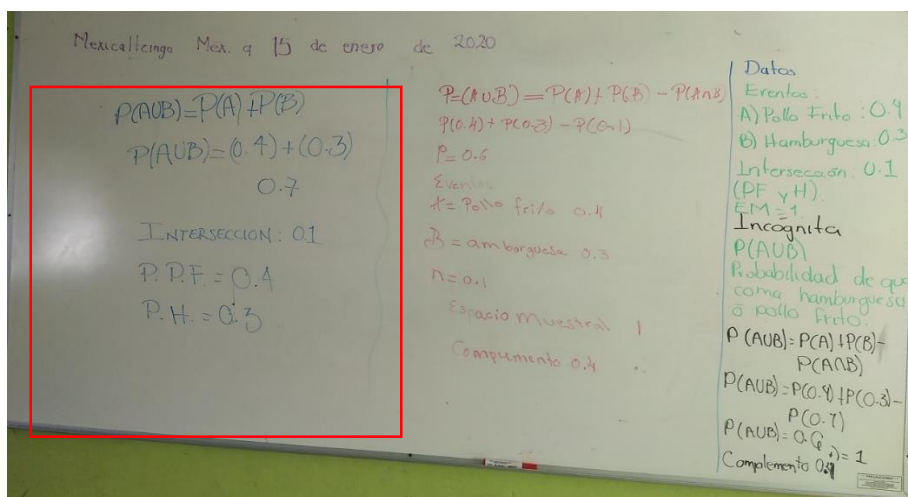 Mexicaltcingo Mex. a 15 de enero de 2020
P(AUB)=P(A)+P(B)
P(AUB)=(0.4)+(0.3)
0.7
INTERSECCION: 0.1
P.P.F.=0.4
P.H.=0.3
P=(AUB)=P(A)+P(B)-P(A∩B)
P(0.4)+P(0.3)-P(0.1)
P=0.6
Eventos
A=Pollo frito 0.4
B=amborguesa 0.3
∩=0.1
Espacio Muestral 1
Compumento 0.4
Datos
Eventos:
A) Pollo Frito: 0.4
B) Hamburguesa: 0.3
Intersección: 0.1
(PF y H).
EM=1.
Incógnita
P(AUB)
Probabilidad de que
coma hamburguesa
ó pollo frito.
P(AUB)=P(A)+P(B)-
P(A∩B)
P(AUB)=P(0.4)+P(0.3)-
P(0.1)
P(AUB)=0.6
=1
Complemento 0.4